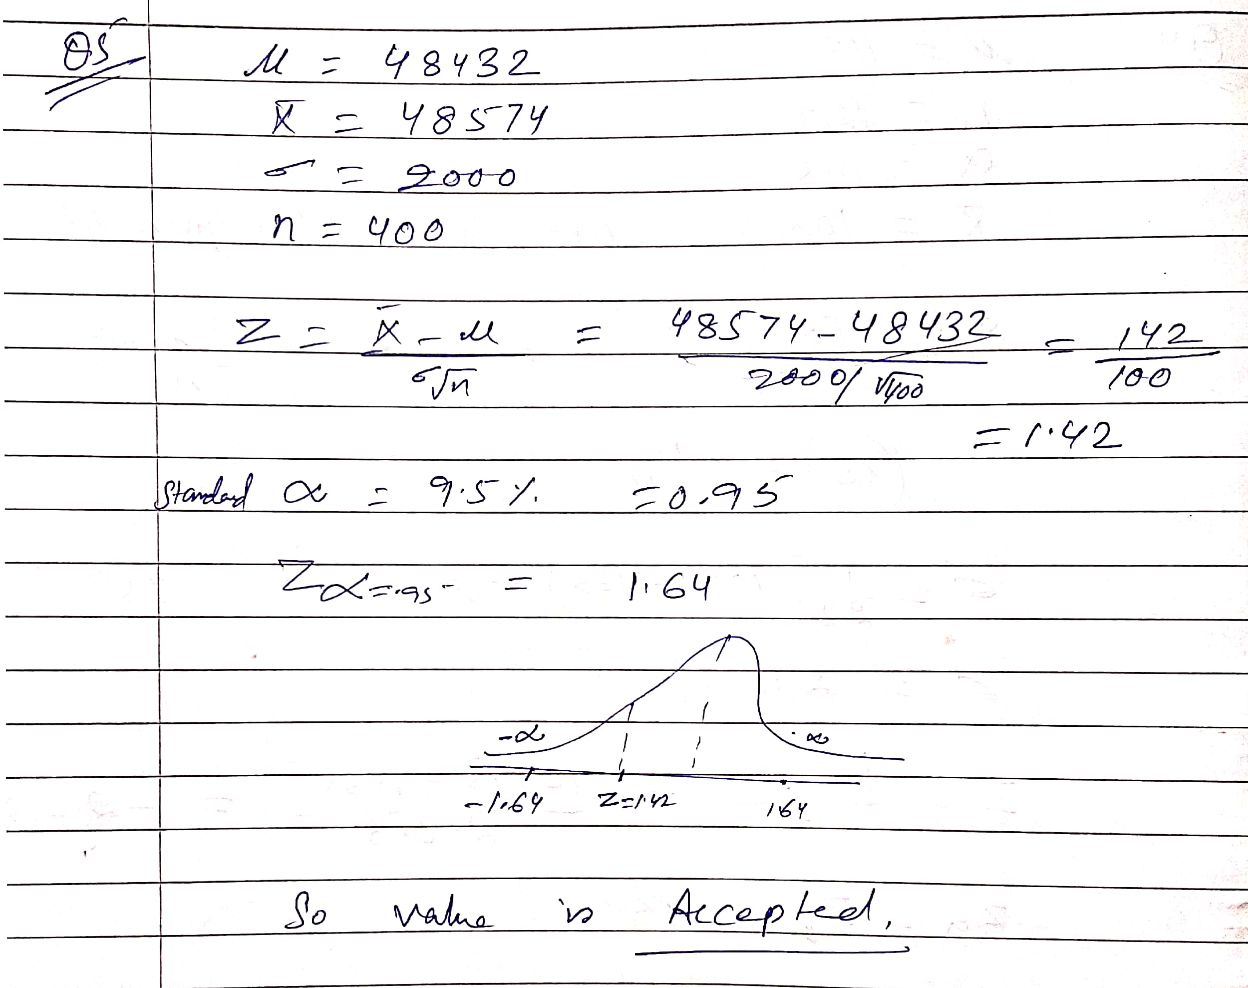 Q5
μ = 48432
x̄ = 48574
σ = 2000
n = 400
Z = x̄ - μ / σ√n = 48574 - 48432 / 2000/√400 = 142 / 100
= 1.42
Standard α = 9.5 % = 0.95
Zα=.95 = 1.64
-α ∞
-1.64 Z=1.42 1.64
So value is Accepted,